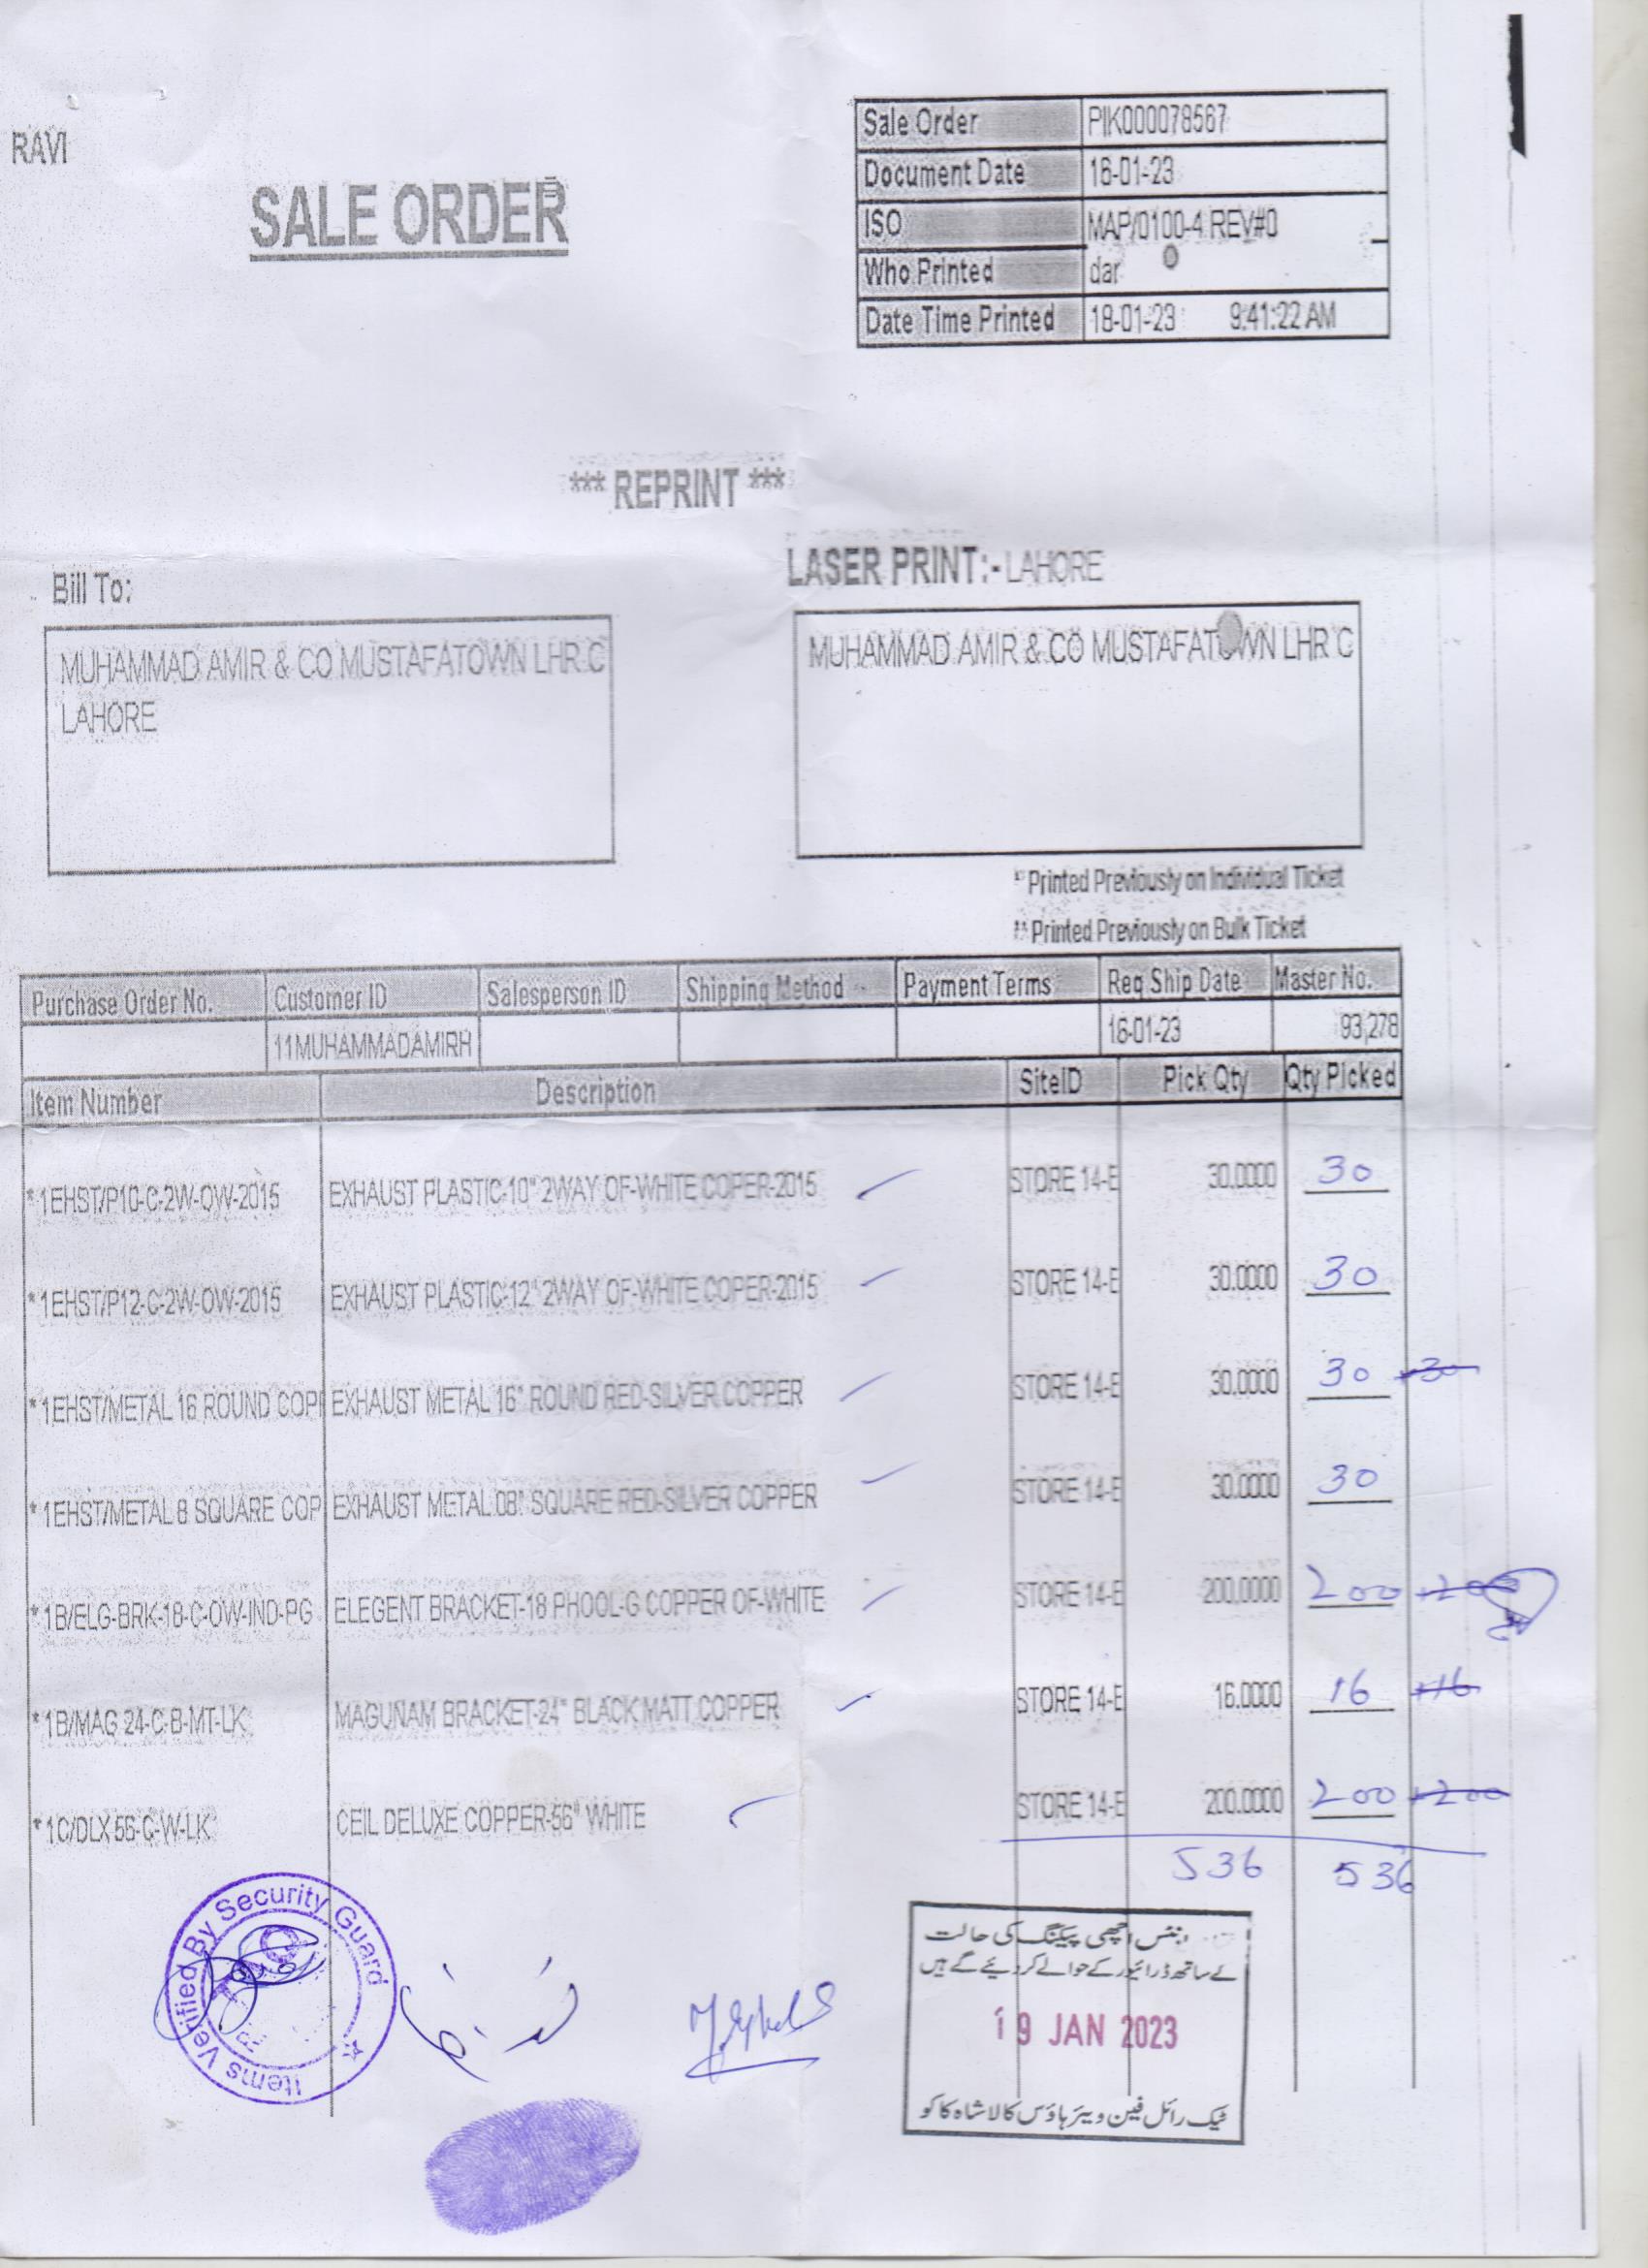 RAVI
SALE ORDER
Sale Order PIK000078567
Document Date 16-01-23
ISO MAP/0100-4 REV#0
Who Printed dar
Date Time Printed 18-01-23 9:41:22 AM
*** REPRINT ***
Bill To:
LASER PRINT:- LAHORE
MUHAMMAD AMIR & CO MUSTAFATOWN LHR C
LAHORE
MUHAMMAD AMIR & CO MUSTAFATOWN LHR C
* Printed Previously on Individual Ticket
** Printed Previously on Bulk Ticket
Purchase Order No. Customer ID Salesperson ID Shipping Method Payment Terms Req Ship Date Master No.
11MUHAMMADAMIRH 16-01-23 93,278
Item Number Description SiteID Pick Qty Qty Picked
* 1EHST/P10-C-2W-OW-2015 EXHAUST PLASTIC-10" 2WAY OF-WHITE COPER-2015 STORE 14-E 30.0000 30
* 1EHST/P12-C-2W-OW-2015 EXHAUST PLASTIC-12" 2WAY OF-WHITE COPER-2015 STORE 14-E 30.0000 30
* 1EHST/METAL 16 ROUND COP EXHAUST METAL 16" ROUND RED-SILVER COPPER STORE 14-E 30.0000 30 +30
* 1EHST/METAL 8 SQUARE COP EXHAUST METAL 08" SQUARE RED-SILVER COPPER STORE 14-E 30.0000 30
* 1B/ELG-BRK-18-C-OW-IND-PG ELEGENT BRACKET-18 PHOOL-G COPPER OF-WHITE STORE 14-E 200.0000 200 +200
* 1B/MAG 24-C-B-MT-LK MAGUNAM BRACKET-24" BLACK MATT COPPER STORE 14-E 16.0000 16 +16
* 1C/DLX 56-C-W-LK CEIL DELUXE COPPER-56" WHITE STORE 14-E 200.0000 200 +200
536 536
Items Verified By Security Guard
اچھی پیکنگ کی حالت
کے ساتھ ڈرائیور کے حوالے کر دیئے گئے ہیں
19 JAN 2023
ٹیک رائل فین ویئر ہاؤس کالا شاہ کاکو